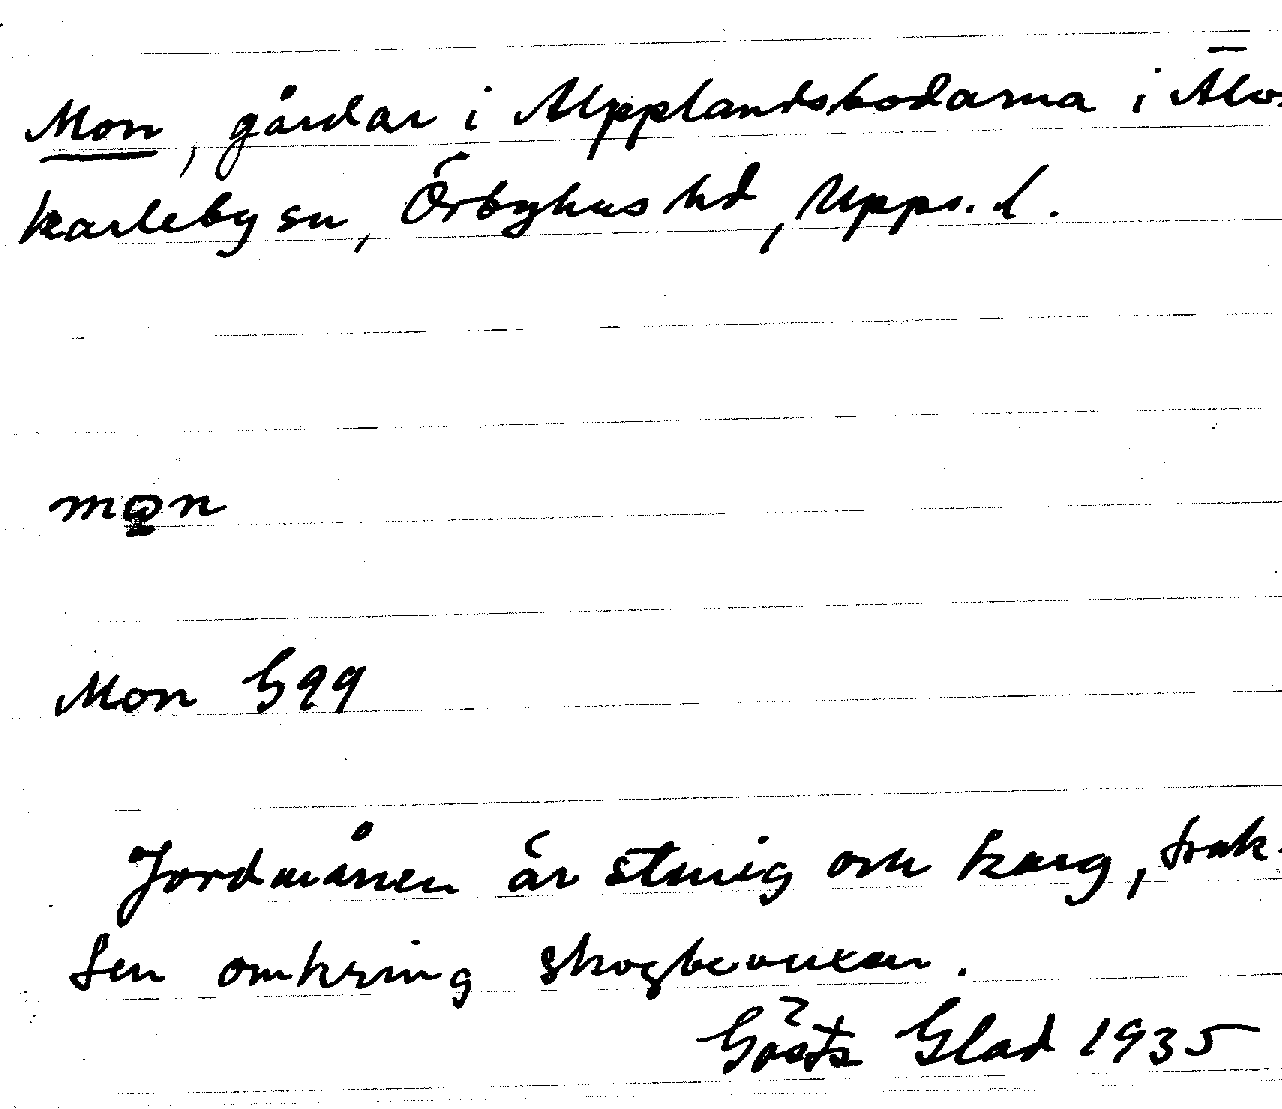 Mon, gårdar i Upplandsbodarna i Älv-
karleby sn, Örbyhus hd, Upps. l.
mo̧n
Mon G99
Jordmånen är stenig och karg, trak-
ten omkring skogbevuxen.
Gösta Glad 1935